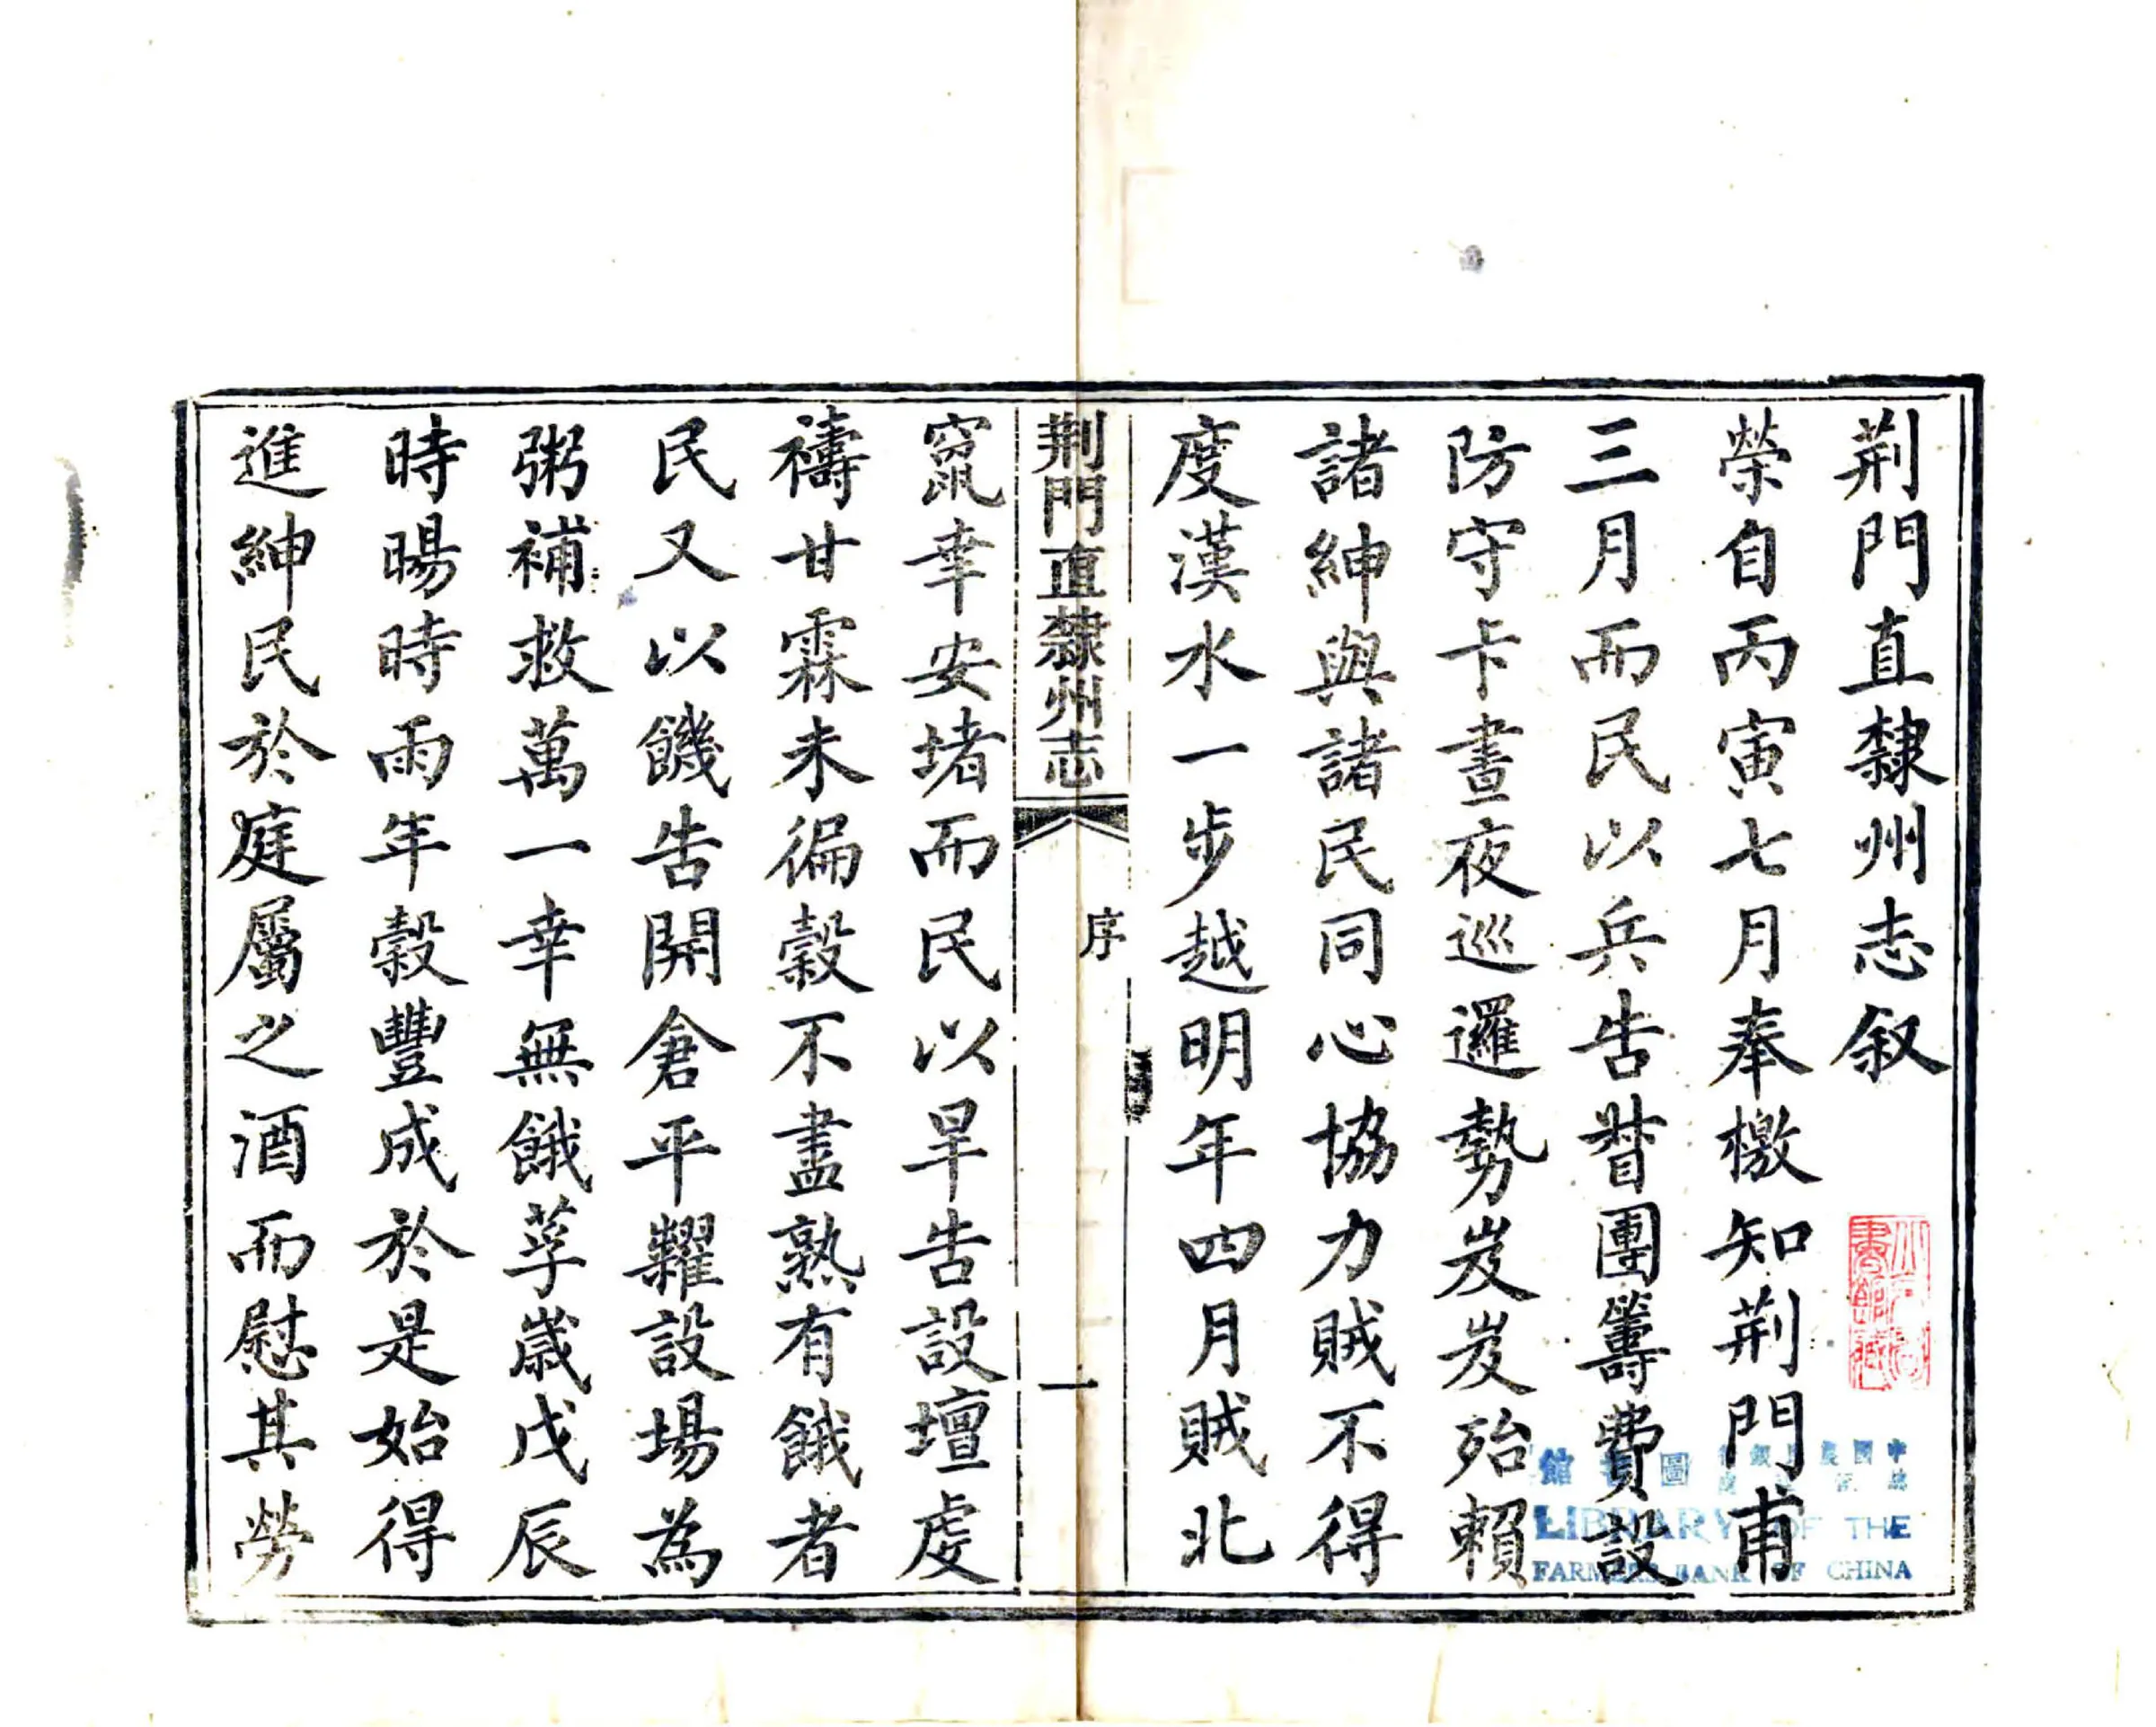 荆門直隸州志叙
榮自丙寅七月奉檄知荆門甫
三月而民以兵告督團籌費設
防守卡晝夜巡邏勢岌岌殆賴
諸紳與諸民同心協力賊不得
度漢水一步越明年四月賊北
荆門直隸州志
序
一
竄幸安堵而民以旱告設壇虔
禱甘霖未徧穀不盡熟有餓者
民又以饑告開倉平糶設場為
粥補救萬一幸無餓莩歲戊辰
時暘時雨年穀豐成於是始得
進紳民於庭屬之酒而慰其勞
圖書館
LIBRARY OF THE
FARMERS BANK OF CHINA